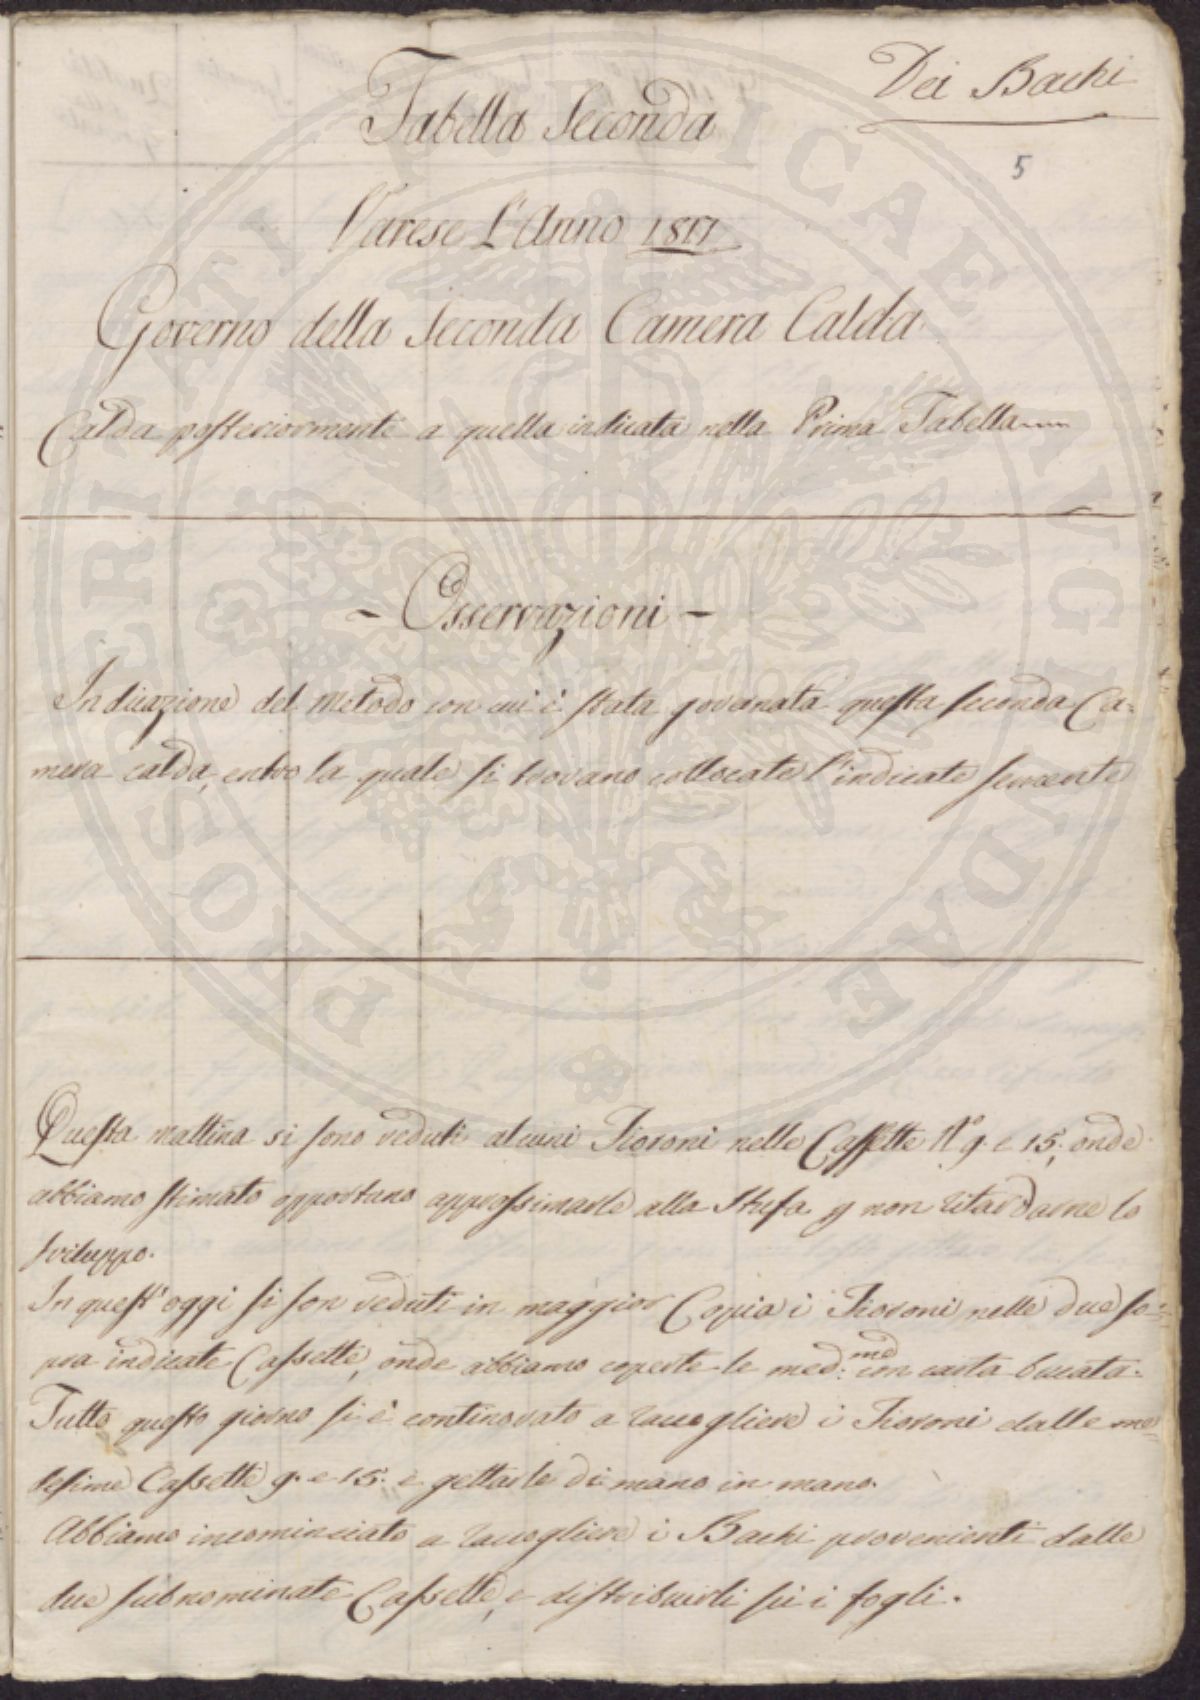 Dei Bachi
5
Tabella Seconda
Varese L'Anno 1817
Governo della Seconda Camera Calda
Calda posteriormente a quella indicata nella Prima Tabella
- Osservazioni -
Indicazione del metodo con cui è stata governata questa seconda Ca=
mera calda, entro la quale si trovano collocate l'indicate semente
Questa mattina si sono veduti alcuni Fioroni nelle Cassette N.° 9. e 15; onde
abbiamo stimato opportuno approssimarle alla Stufa p non ritardarne lo
sviluppo.
In quest'oggi si son veduti in maggior Copia i Fioroni nelle due so=
pra indicate Cassette, onde abbiamo coperte le med:me con carta bucata.
Tutto questo giorno si è continovato a raccogliere i Fioroni dalle me=
desime Cassette 9. e 15. e gettarle di mano in mano.
Abbiamo incominciato a raccogliere i Bachi provenienti dalle
due subnominate Cassette, e distribuirli su i fogli.
PROSPERITATI PVBLICAE AVGENDAE